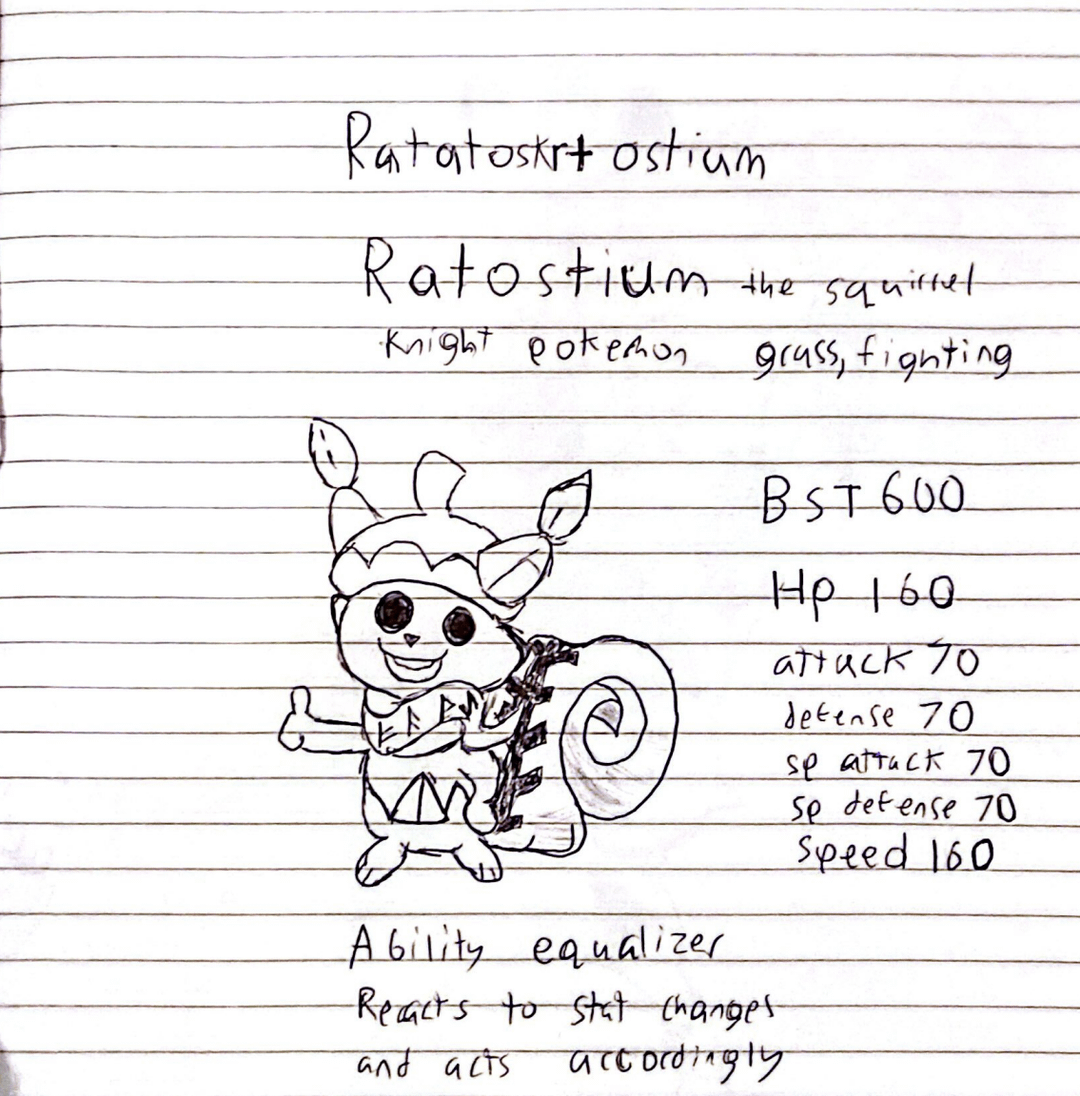 Ratatoskr+ ostium
Ratostium the squirrel
Knight pokemon grass, fighting
BST 600
Hp 160
attack 70
defense 70
sp attack 70
sp defense 70
Speed 160
ᚩ
Ability equalizer
Reacts to stat changes
and acts accordingly